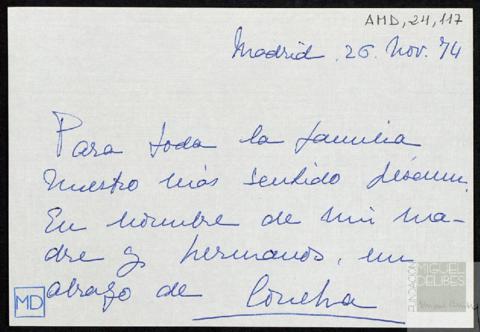 AMD, 24, 117
Madrid, 26. Nov. 74
Para toda la familia
nuestro más sentido pésame.
En nombre de mi ma-
dre y hermanos, un
abrazo de Concha
MD
FUNDACIÓN
MIGUEL
DELIBES